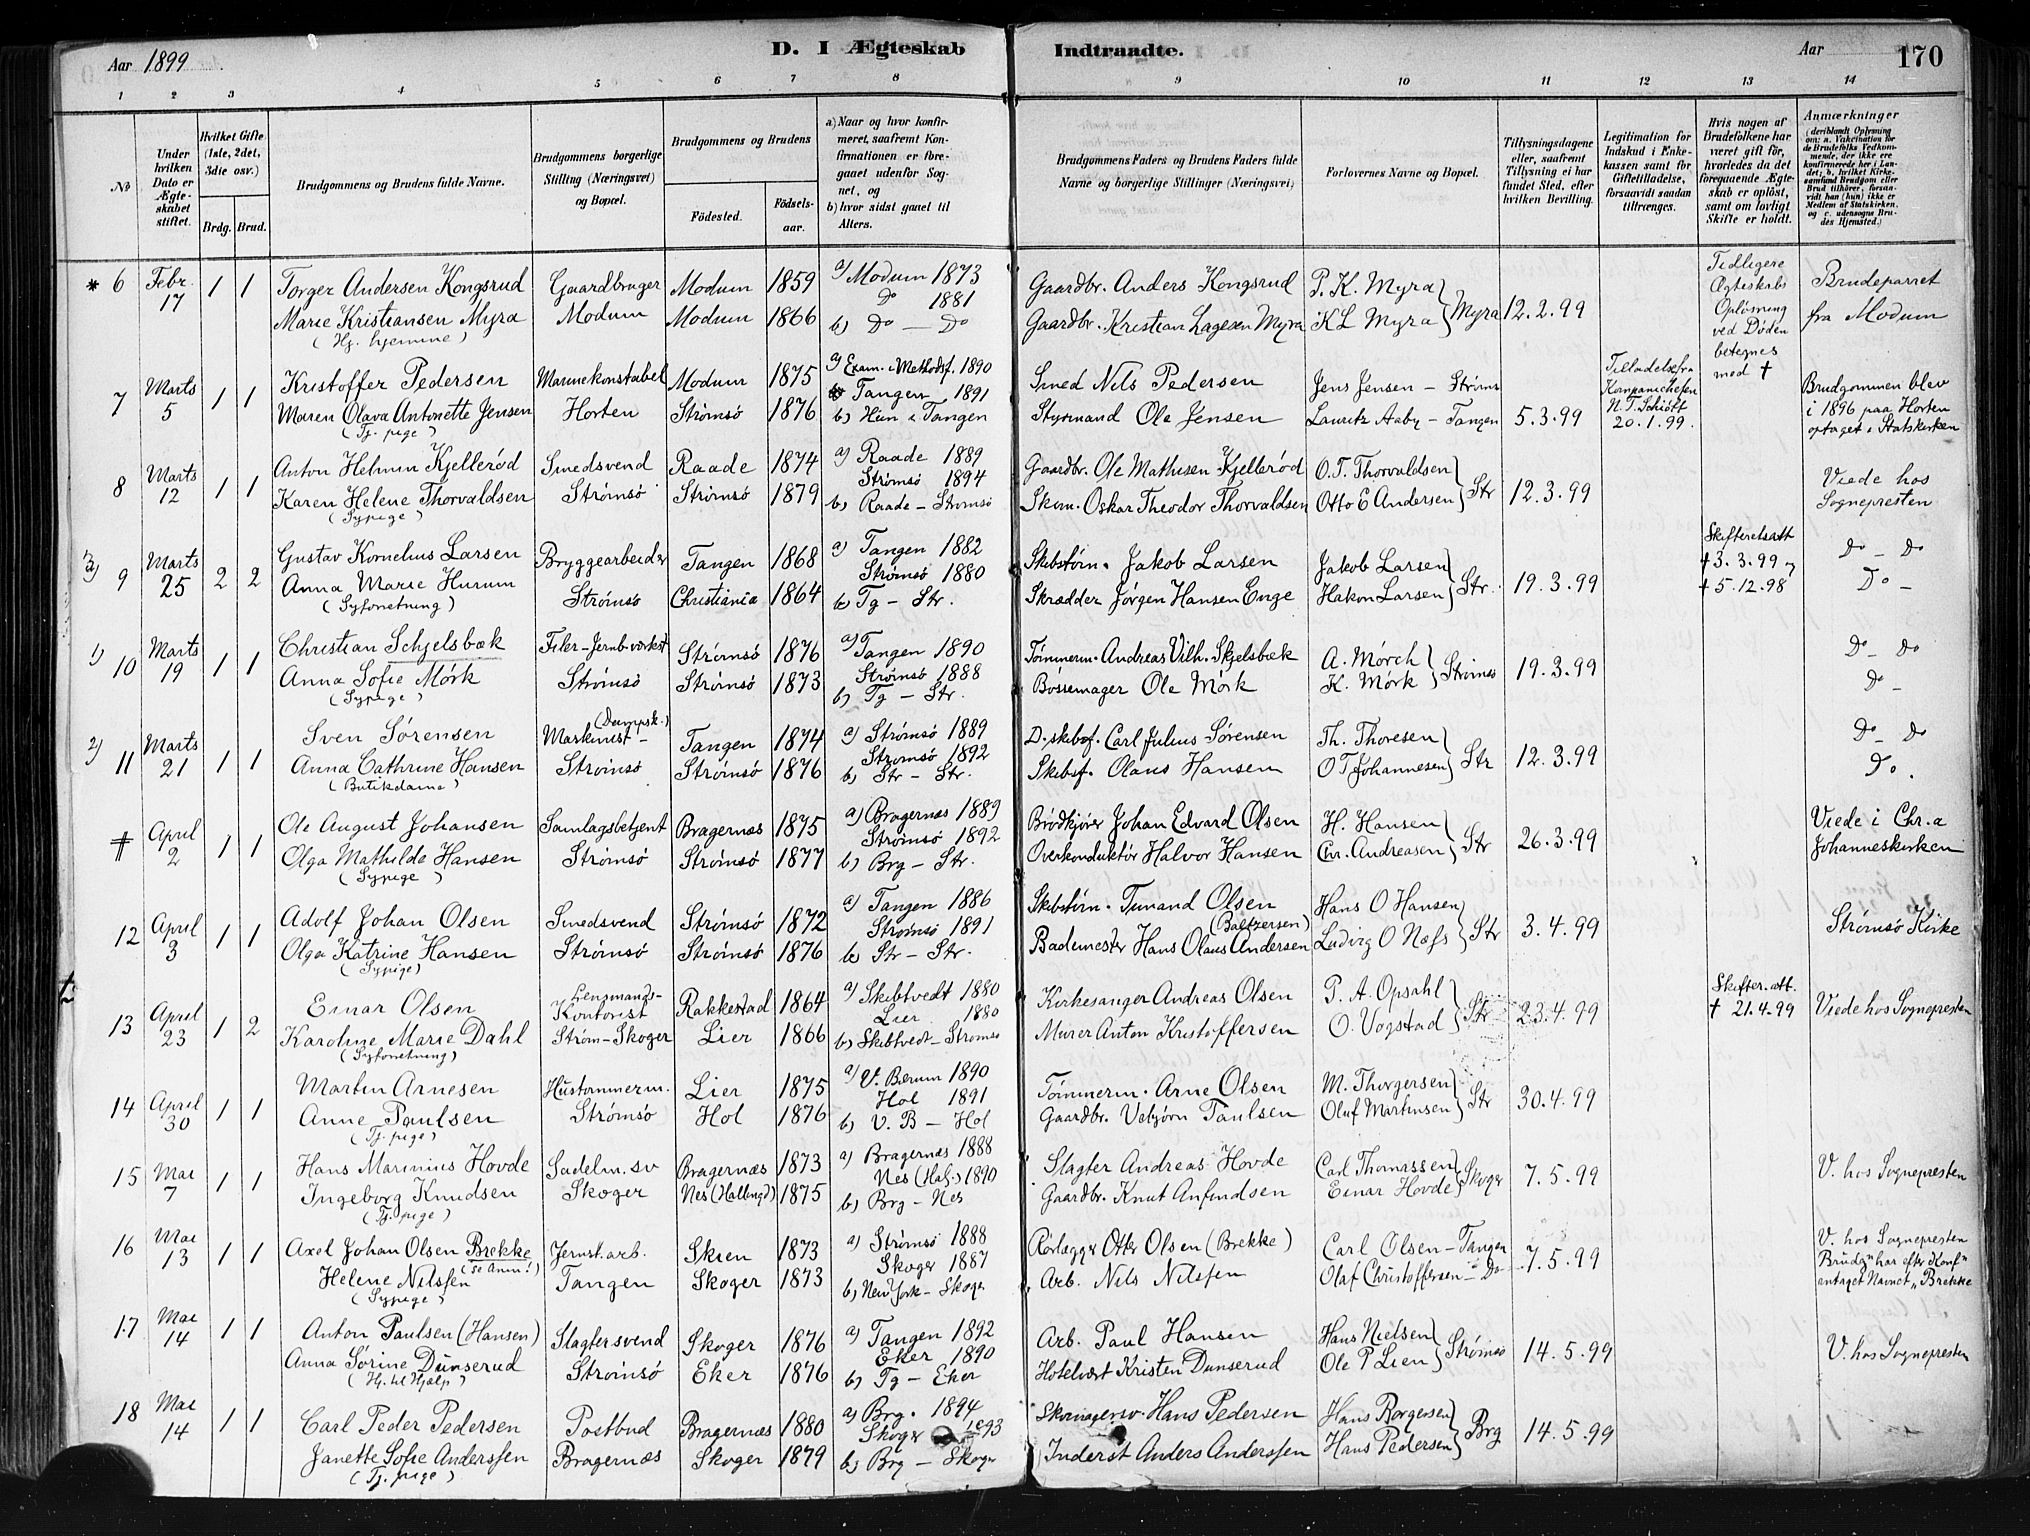 Aar 1899
D. I Ægteskab
Indtraadte.
Aar
170
1 2 3 4 5 6 7 8 9 10 11 12 13 14
No
Under hvilken Dato er Ægteskabet stiftet.
Hvilket Gifte (1ste, 2det, 3die osv.)
Brdg. Brud.
Brudgommens og Brudens fulde Navne.
Brudgommens borgerlige Stilling (Næringsvei) og Bopæl.
Brudgommens og Brudens
Födested.
Födselsaar.
a) Naar og hvor konfirmeret, saafremt Konfirmationen er foregaaet udenfor Sognet, og
b) hvor sidst gaaet til Alters.
Brudgommens Faders og Brudens Faders fulde Navne og borgerlige Stillinger (Næringsvei)
Forlovernes Navne og Bopæl.
Tillysningsdagene eller, saafremt Tillysning ei har fundet Sted, efter hvilken Bevilling.
Legitimation for Indskud i Enkekassen samt for Giftetilladelse, forsaavidt saadan tiltrænges.
Hvis nogen af Brudefolkene har været gift för, hvorledes da det foregaaende Ægteskab er oplöst, samt om lovligt Skifte er holdt.
Anmærkninger (deriblandt Oplysning om: a. Vakcination for de Brudefolks Vedkommende, der ikke ere konfirmerede her i Landet; b. hvilket Kirkesamfund Brudgom eller Brud tilhörer, forsaavidt han (hun) ikke er Medlem af Statskirken, og c. udensogns Brudes Hjemsted.)
* 6 Febr. 17 1 1 Torger Andersen Kongsrud Gaardbruger Modum 1859 a) Modum 1873 Gaardbr. Anders Kongsrud P. K. Myra } Myra 12.2.99 Tidligere Ægteskabs Oplösning ved Döden betegnes med † Brudeparret fra Modum
Marie Kristiansen Myra Modum Modum 1866 Do 1881 Gaardbr. Kristian Lagesen Myra K L Myra
(Hj. hjemme) b) Do — Do
7 Marts 5 1 1 Kristoffer Pedersen Marinekonstabel Modum 1875 a) Exam. i Methodsf. 1890 Smed Nils Pedersen Jens Jensen – Strøms 5.3.99 Tilladelse fra Kompanichefen N. T. Schiött 20.1.99. Brudgommen blev i 1896 paa Horten optaget i Statskirken
Maren Olava Antonette Jensen Horten Strømsö 1876 Tangen 1891 Styrmand Ole Jensen Lauritz Aaby – Tangen
(Tj. pige) b) Hun i Tangen
8 Marts 12 1 1 Anton Helmin Kjellerød Smedsvend Raade 1874 a) Raade 1889 Gaardbr. Ole Mathisen Kjellerød O. T. Thorvaldsen } Str 12.3.99 Viede hos Sognepresten
Karen Helene Thorvaldsen Strømsö Strømsö 1879 Strømsö 1894 Skom. Oskar Theodor Thorvaldsen Otto E Andersen
(Sypige) b) Raade – Strømsö
3) 9 Marts 25 2 2 Gustav Kornelius Larsen Bryggearbeider Tangen 1868 a) Tangen 1882 Skibstørn. Jakob Larsen Jakob Larsen } Str. 19.3.99 Skifteretsatt † 3.3.99 og † 5.12.98 Do – Do
Anna Marie Hurum Strømsö Christiania 1864 Strømsö 1880 Skrædder Jörgen Hansen Enge Hakon Larsen Do –
(Syforretning) b) Tg – Str.
1) 10 Marts 19 1 1 Christian Schjelsbæk Filer–Jernb.værkst Strømsö 1876 a) Tangen 1890 Tømmerm. Andreas Vilh. Skjelsbæk A. Mörch } Strömsö 19.3.99 Do – Do
Anna Sofie Mörk Strømsö Strømsö 1873 Strømsö 1888 Bössemager Ole Mörk K. Mörk Do –
(Sypige) b) Tg – Str.
2) 11 Marts 21 1 1 Sven Sörensen (Dampsk.) Maskinist – Tangen 1874 a) Strømsö 1889 D.skibsf. Carl Julius Sörensen Th. Thoresen } Str 12.3.99 Do – Do
Anna Cathrine Hansen Strömsö Strømsö 1876 Strømsö 1892 Skibsf. Olaus Hansen O T Johannesen Do.
(Butikdame) b) Str – Str.
# April 2 1 1 Ole August Johansen Samlagsbetjent Bragernæs 1875 a) Bragernes 1889 Brödkjörer Johan Edvard Olsen H. Hansen } Str 26.3.99 Viede i Chr.a Johanneskirken
Olga Mathilde Hansen Strømsö Strømsö 1877 Strømsö 1892 Overkonduktör Halvor Hansen Chr. Andreasen
(Sypige) b) Brg – Str.
12 April 3 1 1 Adolf Johan Olsen Smedsvend Strømsö 1872 a) Tangen 1886 Skibstørn. Tinand Olsen Hans O Hansen } Str 3.4.99 Strømsö Kirke
Olga Katrine Hansen Strömsö Strømsö 1876 Strømsö 1891 Bademester Hans Olaus Andersen (Baltzersen) Ludvig O Næss
(Sypige) b) Str – Str.
13 April 23 1 2 Einar Olsen Lensmands-Kontorist Rakkestad 1864 a) Skibtvedt 1880 Kirkesanger Andreas Olsen P. A. Opsahl } Str 23.4.99 Skifter. att. † 21.4.99 Viede hos Sognepresten
Karoline Marie Dahl Strøm–Skoger Lier 1866 Lier 1880 Murer Anton Kristoffersen O. Vogstad
(Syforretning) b) Skibtvedt – Strømsö
14 April 30 1 1 Martin Arnesen Hustømmerm. Lier 1875 a) V. Bærum 1890 Tömmerm. Arne Olsen M. Thorgersen } Str 30.4.99
Anne Paulsen Strømsö Hol 1876 Hol 1891 Gaardbr. Vebjörn Paulsen Oluf Martinsen
(Tj. pige) b) V. B – Hol
15 Mai 7 1 1 Hans Marinius Hovde Sadelm. sv Bragernæs 1873 a) Bragernæs 1888 Slagter Andreas Hovde Carl Thomassen } Skoger 7.5.99 V. hos Sognepresten
Ingeborg Knudsen Skoger Nes (Hallingd) 1875 Nes (Hal.) 1890 Gaardbr. Knut Anfindsen Einar Hovde
(Tj. pige) b) Brg – Nes
16 Mai 13 1 1 Axel Johan Olsen Brekke (se Anm!) Jernst. arb. Skien 1873 a) Strømsö 1888 Rørlægger Otter Olsen (Brekke) Carl Olsen – Tangen 7.5.99 V. hos Sognepresten
Helene Nilssen Tangen Skoger 1873 Skoger 1887 Arb. Nils Nilssen Olaf Christoffersen – Do Brudg. har efter Konf. antaget Navnet „Brekke
(Sypige) b) New York – Skoger
17 Mai 14 1 1 Anton Paulsen (Hansen) Slagtersvend Skoger 1876 a) Tangen 1892 Arb. Paul Hansen Hans Nielsen } Strømsö 14.5.99 V. hos Sognepresten
Anna Sörine Dunserud Strømsö Eker 1876 Eker 1890 Hotelvært Kristen Dunserud Ole P Lien
(Hj. til Hjælp) b) Tg – Eker
18 Mai 14 1 1 Carl Peder Pedersen Postbud Bragernæs 1880 a) Brg. 1894 Skomagersv. Hans Pedersen Hans Borgersen } Brg 14.5.99
Janette Sofie Anderssen Bragernæs Skoger 1879 Skoger 1893 Inderst Anders Anderssen Hans Pedersen
(Tj. pige) b) Brg – Skoger